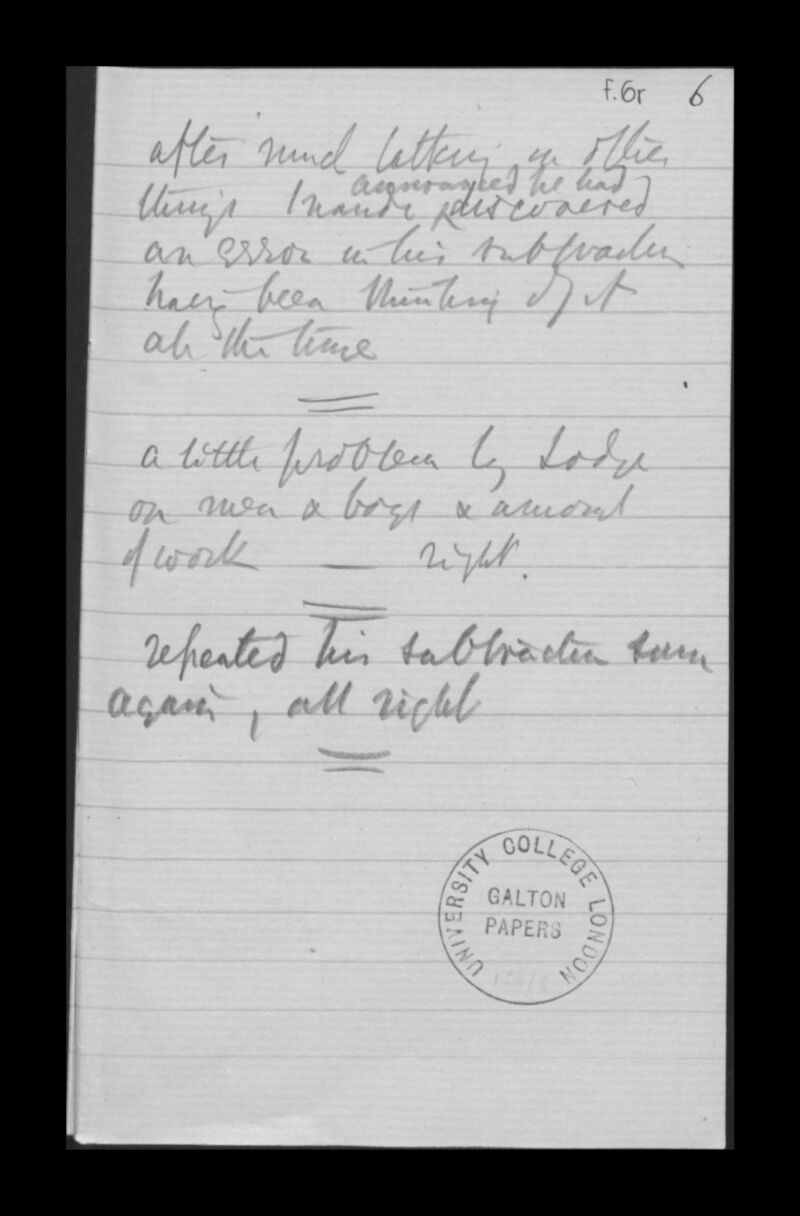 f.6r 6
after much talking on other
announced he had
things Inaudi discovered
an error in his subtraction
having been thinking of it
all the time
a little problem by Lodge
on men & boys & amount
of work — right.
repeated his subtraction sum
again, all right
UNIVERSITY COLLEGE LONDON
GALTON
PAPERS